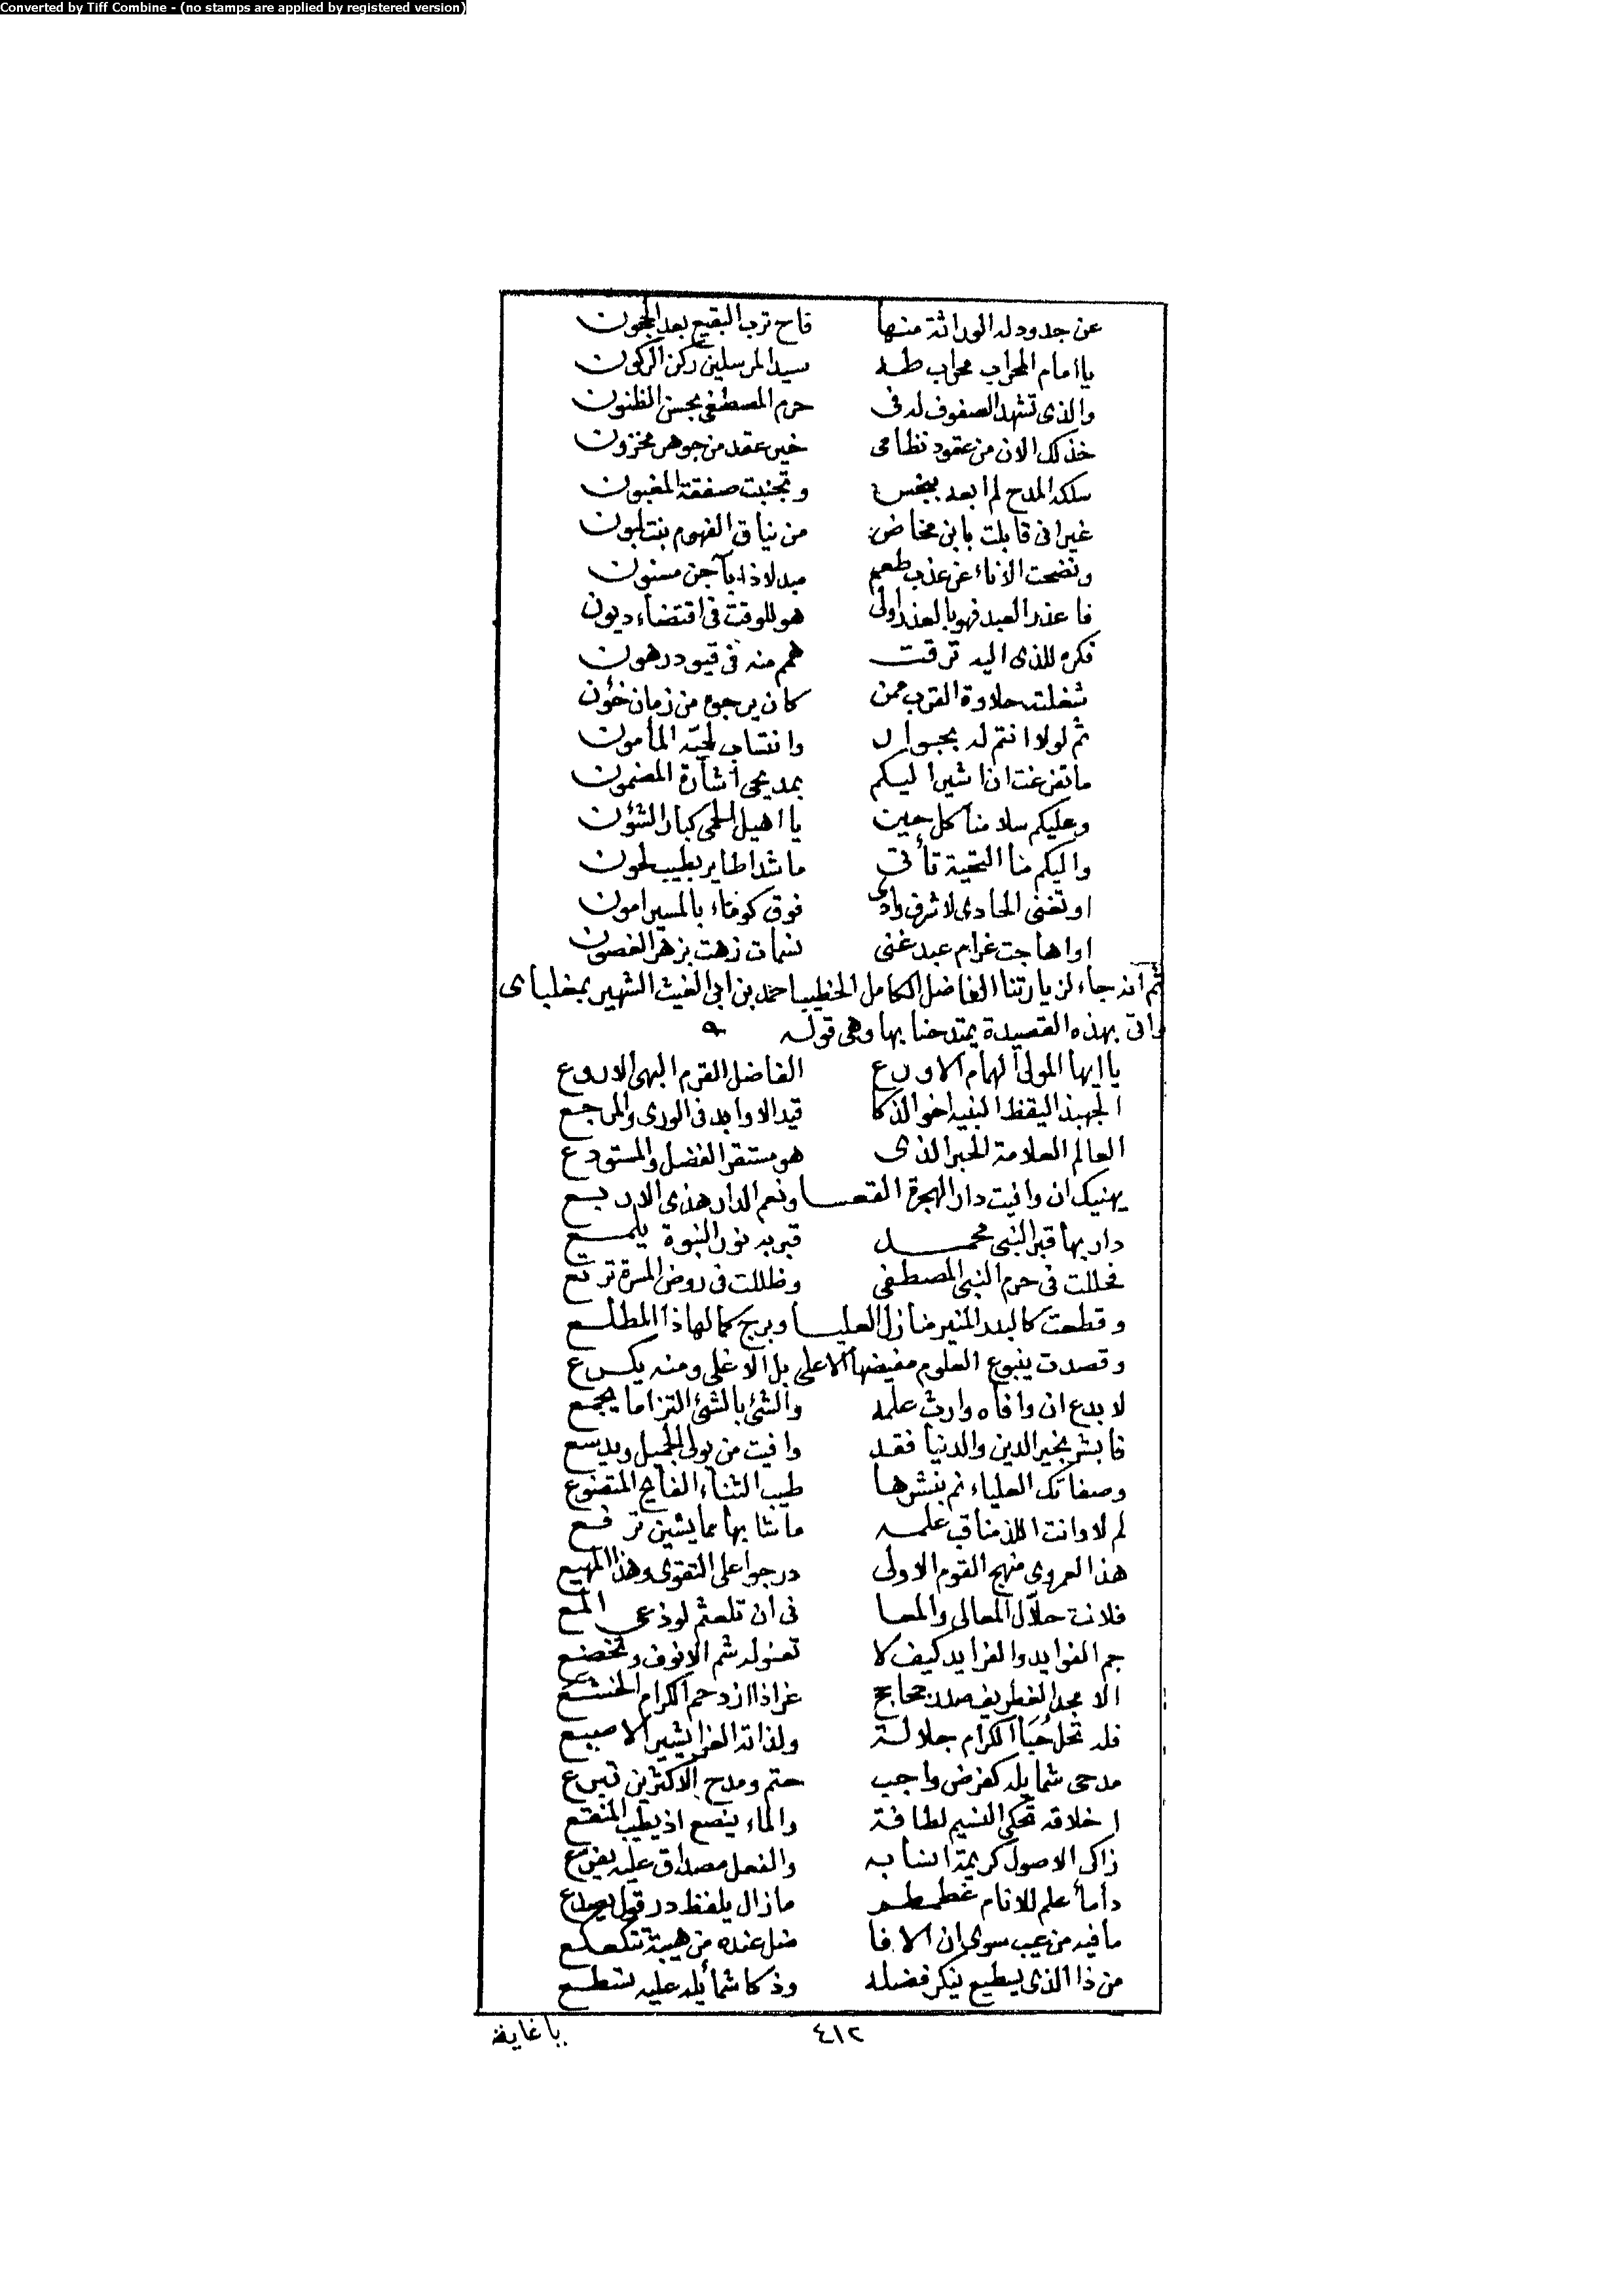 Converted by Tiff Combine - (no stamps are applied by registered version)
عن جدود له الوراثة منها فاح ترب البقيع بعد الحجون
يا امام المحراب محراب طه سيد المرسلين ركن الركون
والذى تشهد الصفوف له فى حرم المصطفى بحسن الظنون
خذ لك الان من عقود نظامى خير عقد من جوهر مخزون
سلكه المدح لم ابعه ببخس وتجنبت صفقة المغبون
غير انى قابلت بابن مخاض من نياق الفهوم بنت لبون
ونضحت الاناء عن عذب طعم مبدلا ذا بآجن مسنون
فاعذر العبد فهو بالعذر اولى هو للوقت فى اقتضاء ديون
فكره للذى اليه ترقت همم منه فى قيود رهون
شغلته حلاوة القرب ممن كان يرجوه من زمان خؤن
ثم لولا انتم له بجوار وانتساب لحيّه المأمون
ما تفرغت ان اشير اليكم بمديحى اشارة المضمون
وعليكم سلامنا كل حين يا اهيل الحمى كبار الشؤن
واليكم منا التحية تأتى ما شدا طاير بطيب لحون
او تغنى الحادى لاشرف وادى فوق كوماء بالمسير امون
او اهاجت غرام عبد غنى نسمات زهت بزهر الغصون
ثم انه جاء لزيارتنا الفاضل الكامل الخطيب احمد بن ابى الغيث الشهير بمغلباى
واتى بهذه القصيدة يمتدحنا بها وهى قوله
يا ايها المولى الهمام الاورع الفاضل القرم البهى الاروع
الجهبذ اليقظ النبيه اخو الذكا قيد الاوابد فى الورى والمرجع
العالم العلامة الحبر الذى هو مستقر الفضل والمستودع
يهنيك ان وافيت دار الهجرة القعسا ونعم الدار هذى الاربع
دار بها قبر النبى محمد قبر به نور النبوة يلمع
فحللت فى حرم النبى المصطفى وظللت فى روض المسرة ترتع
وقطعت كالبدر المنير منازل العليا وبرج كمالها ذا المطلع
وقصدت ينبوع العلوم مفيضها الاعلى بل الاغلى ومنه يكرع
لا بدع ان وافاه وارث علمه والشئ بالشئ التزاما يجمع
فابشر بخير الدين والدنيا فقد وافيت من يولى الجميل ويدسع
وصفاتك العلياء نم بنشرها طيب الثناء الفايح المتضوع
لم لا وانت اللذ مناقب علمه ما شابها مما يشين ترفع
هذا لعمروى منهج القوم الاولى درجوا على التقوى وهذا المهيع
فلانت حلّال المعالى والمعا فى ان تلعثم لوذعى المع
جم الفوايد والفرايد كيف لا تعنو له شم الانوف وتخضع
الامجد الغطريف صدر جحاجح غر اذا ازدحم الكرام الخشع
فله تحل حُبَا الكرام جلالة ولذاته الغرا يشير الاصبع
مدحى شمايله كفرض واجب حتم ومدح الاكثرين تبرع
اخلاقه تحكى النسيم لطافة والماء ينصع اذ يطيب المنقع
زاكى الاصول كريمة انسابه والفعل مصداق عليه يفرع
دأماء علم للانام غطمطم ما زال يلفظ در قول يصدع
ما فيه من عيب سوى ان الافا ضل عنده من هيبة تتكعكع
من ذا الذى يسطيع ينكر فضله وذكا شمائله عليه تسطع
٤١٢
يا غاية